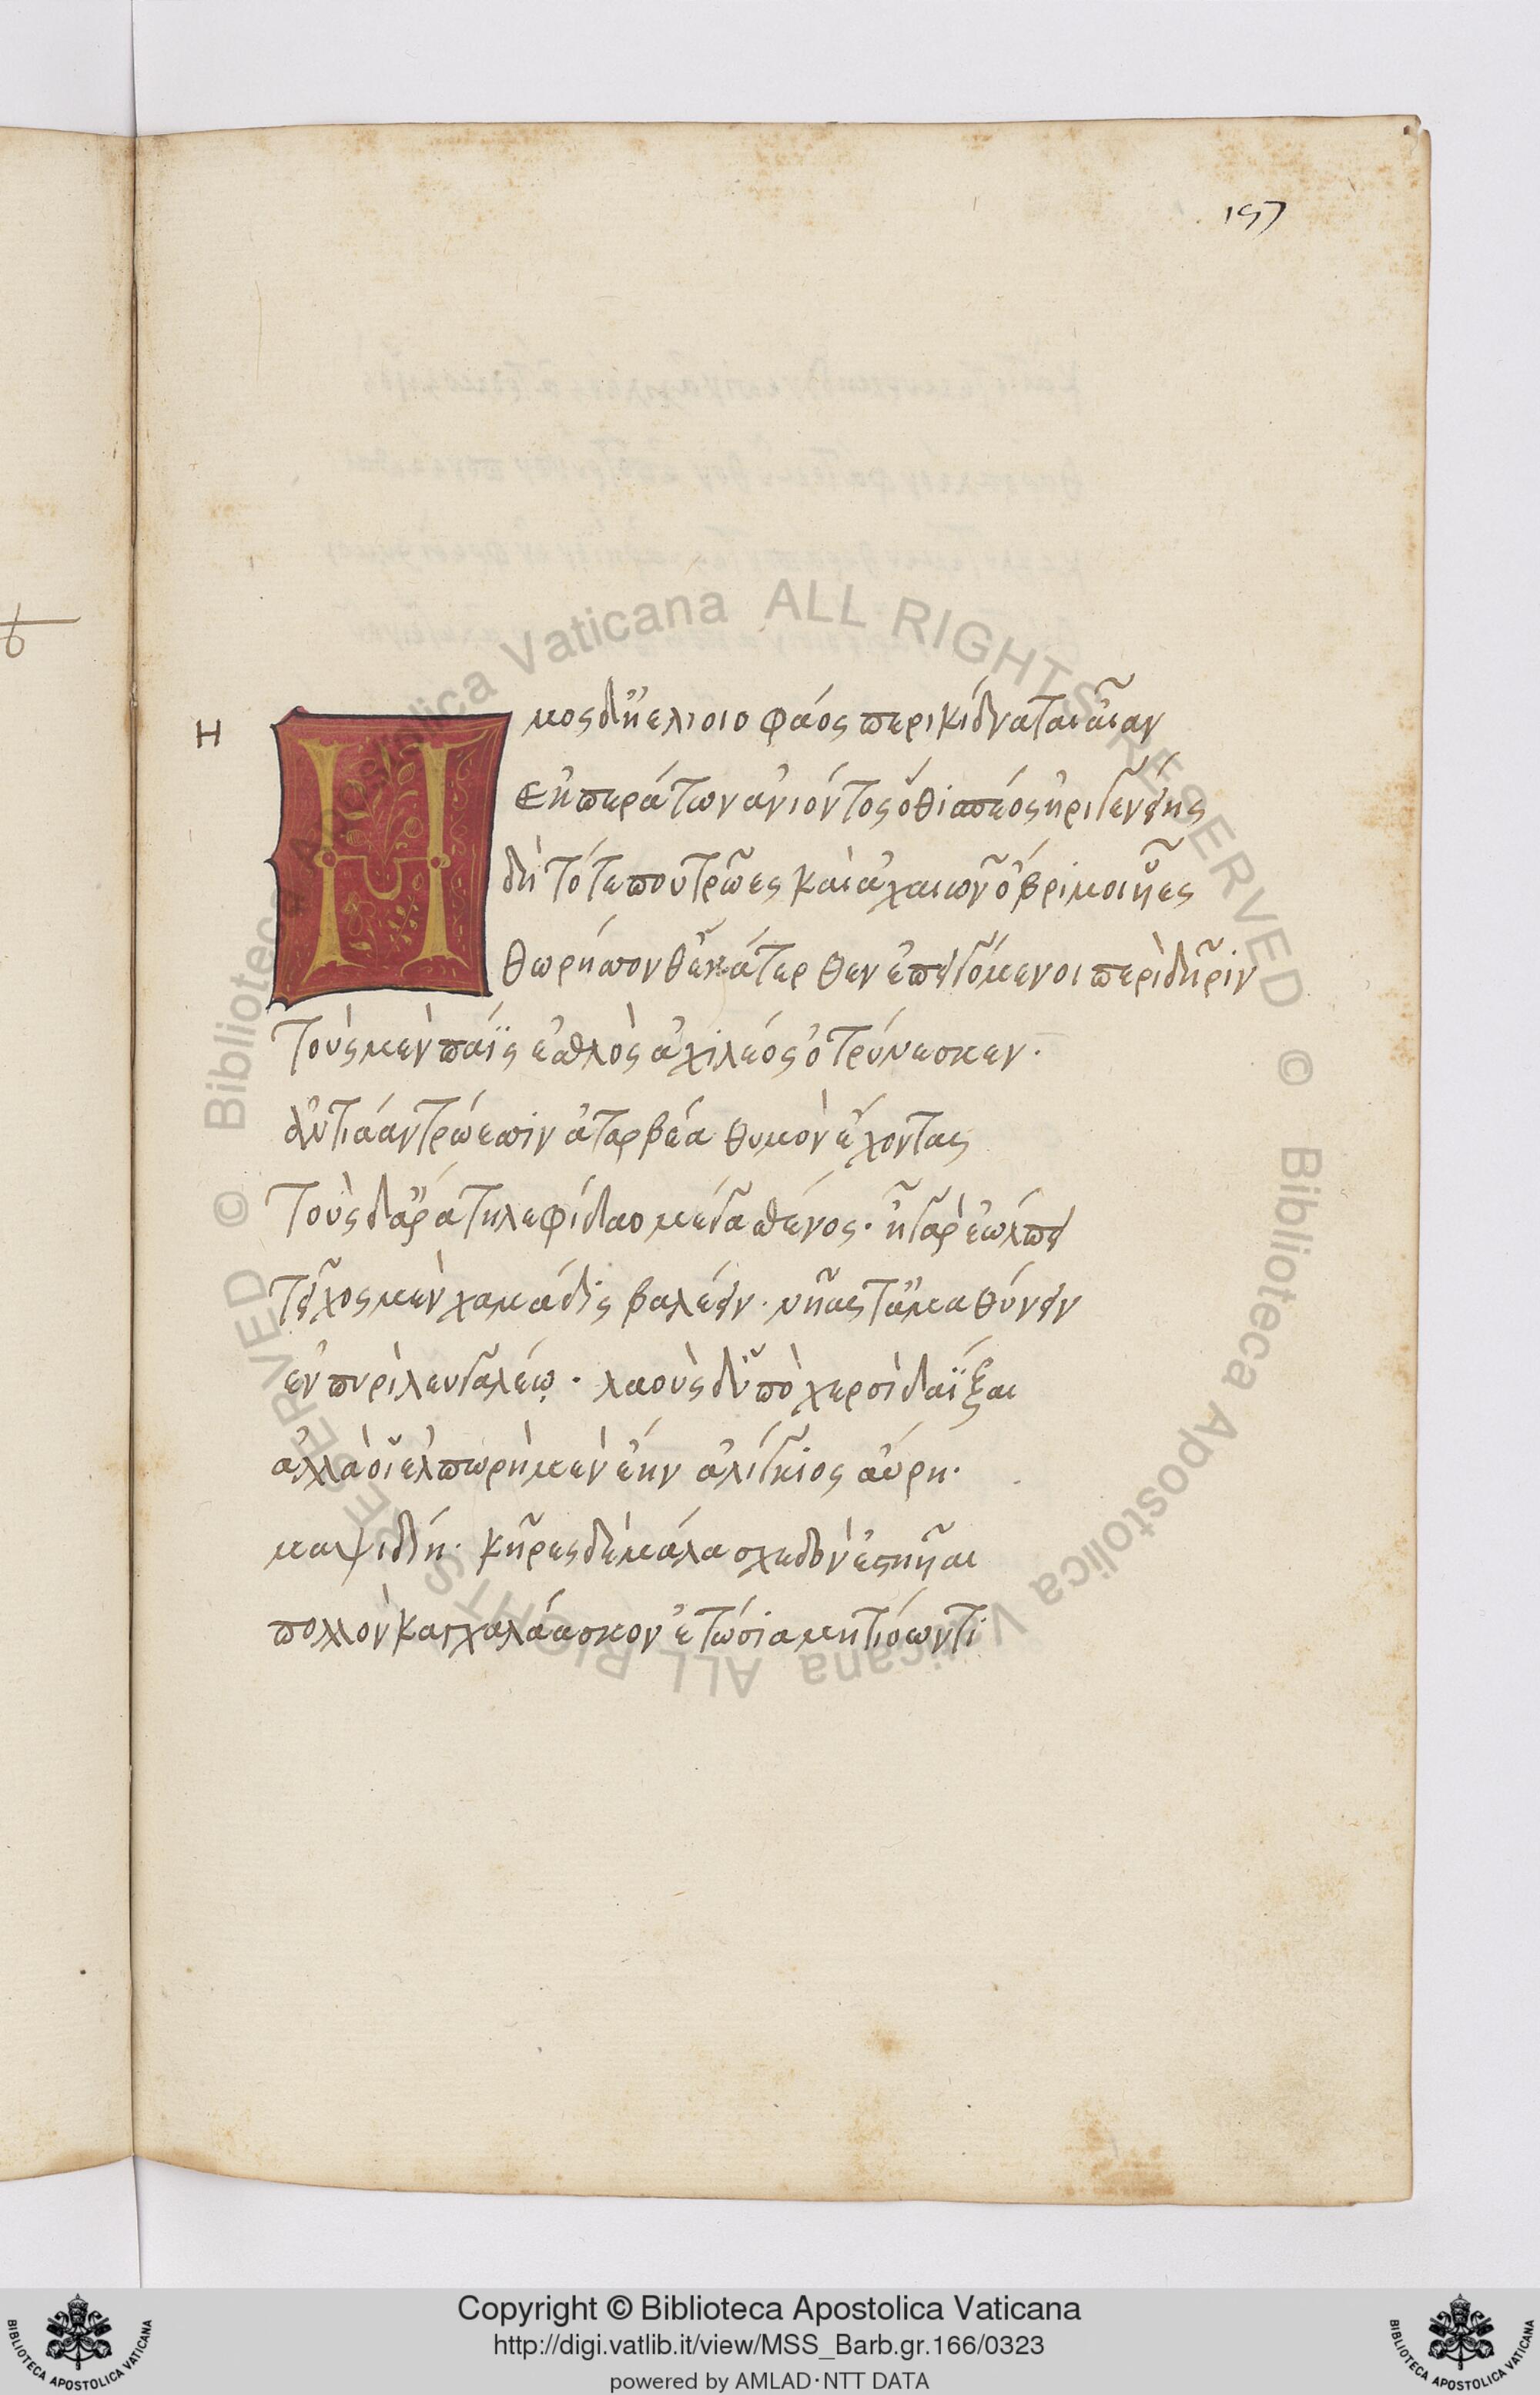 157
Η
Ημος δ' ἠελίοιο φάος περικίδναται αἶαν
ἐκ περάτων ἀνιόντος ὅθι σπέος ἠριγενείης
δὴ τότε που τρῶες καὶ ἀχαιῶν ὄβριμοι υἷες
θωρήσσονθ' ἑκάτερθεν ἐπειγόμενοι περὶ δῆριν
τοὺς μὲν πάϊς ἐσθλὸς ἀχιλέος ὀτρύνεσκεν.
ἀντιάαν τρώεσσιν ἀταρβέα θυμὸν ἔχοντας
τοὺς δ' ἄρα τηλεφίδαο μέγα σθένος. ἦ γὰρ ἐώλπει
τεῖχος μὲν χαμάδις βαλέειν. νῆας τ' ἀμαθύνειν
ἐν πυρὶ λευγαλέῳ. λαοὺς δ' ὑπὸ χερσὶ δαΐξαι
ἀλλά οἱ ἐλπωρὴ μὲν ἔην ἀλίγκιος αὔρη.
μαψιδίη. κῆρες δὲ μάλα σχεδὸν ἑστηῦαι
πολλὸν καγχαλάασκον ἐτώσια μητιόωντι
Biblioteca Apostolica Vaticana ALL RIGHTS RESERVED ©
Biblioteca Apostolica Vaticana ALL RIGHTS RESERVED ©
Copyright © Biblioteca Apostolica Vaticana
http://digi.vatlib.it/view/MSS_Barb.gr.166/0323
powered by AMLAD·NTT DATA
BIBLIOTECA APOSTOLICA VATICANA
BIBLIOTECA APOSTOLICA VATICANA